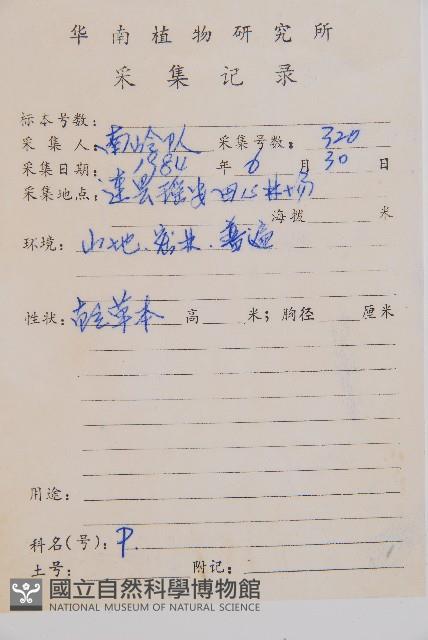 华南植物研究所
采集记录
标本号数：
采集人：南岭队 采集号数：320
采集日期：1984 年 6 月 30 日
采集地点：连县瑶安 林场
海拨 米
环境：山地，密林，普遍
性状：草本 高 米；胸径 厘米
用途：
科名(号)：P.
土号： 附记：
國立自然科學博物館
NATIONAL MUSEUM OF NATURAL SCIENCE